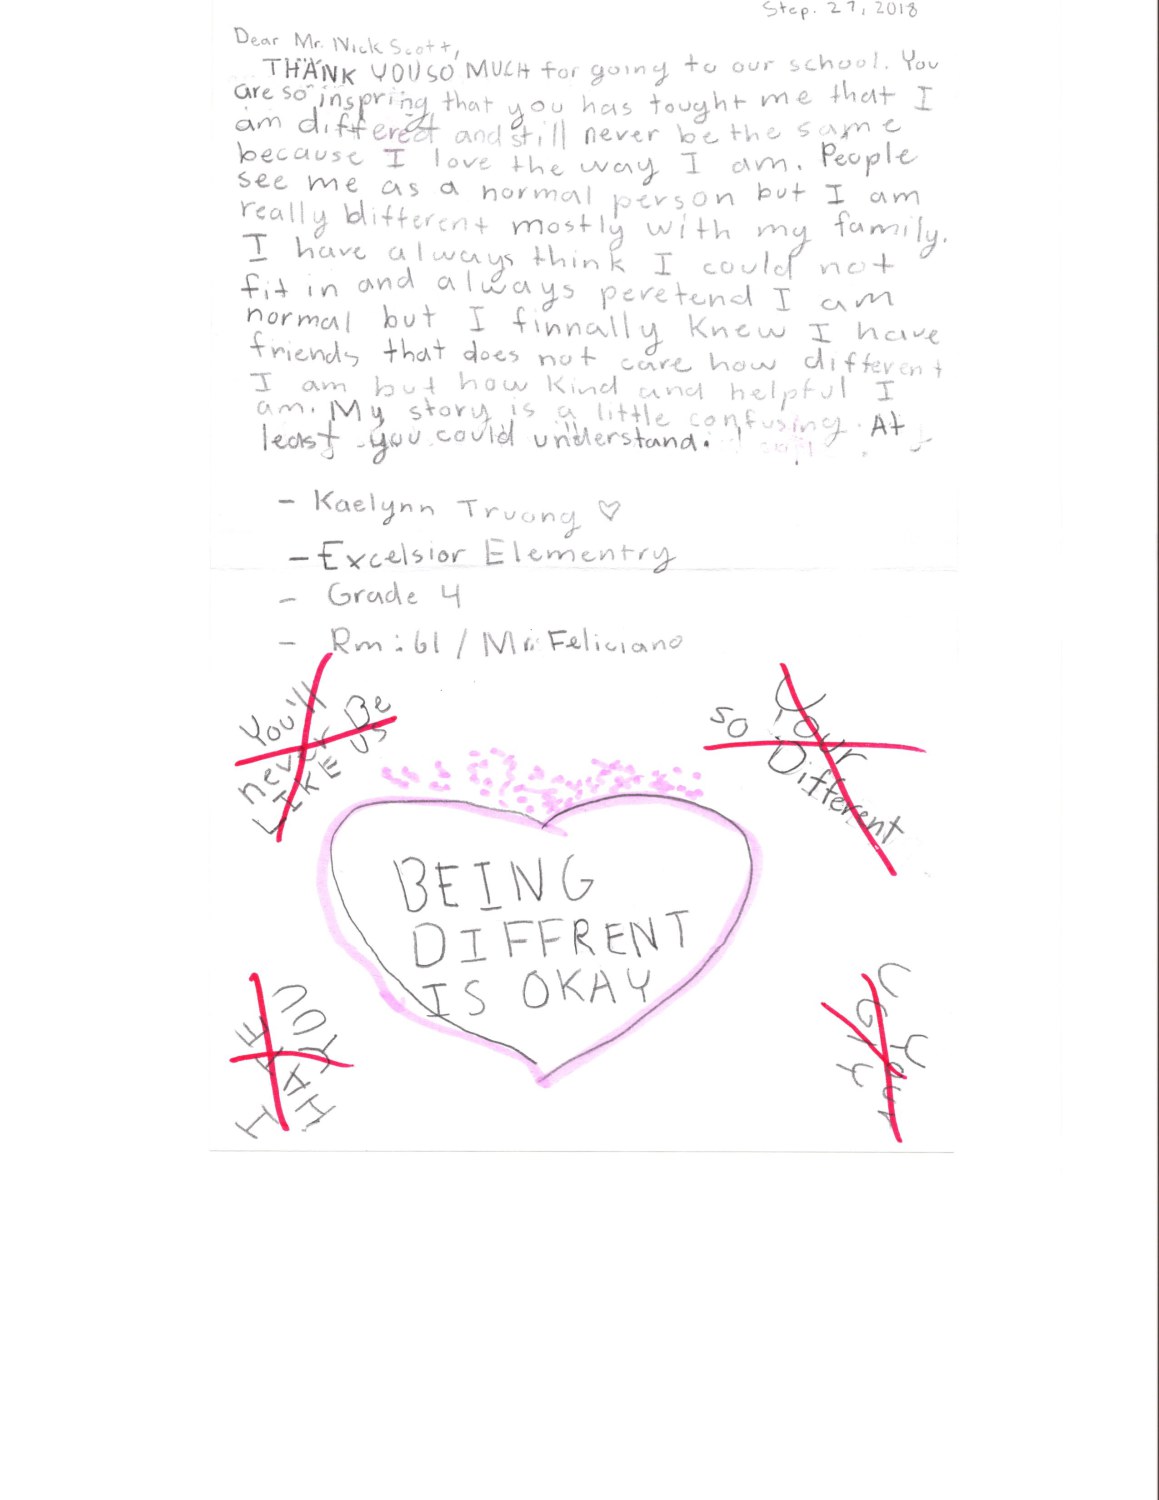 Step. 27, 2018
Dear Mr. Nick Scott,
THANK YOU SO MUCH for going to our school. You
are so inspring that you has tought me that I
am differet and still never be the same
because I love the way I am. People
see me as a normal person but I am
really different mostly with my family.
I have always think I could not
fit in and always peretend I am
normal but I finnally knew I have
friends that does not care how different
I am but how kind and helpful I
am. My story is a little confusing. At
least you could understand.
- Kaelynn Truong ♡
- Excelsior Elementry
- Grade 4
- Rm: 61 / Mr. Feliciano
You'll
never Be
LIKE US
Your
so Different
BEING
DIFFRENT
IS OKAY
I HATE
YOU
Your
UGLY